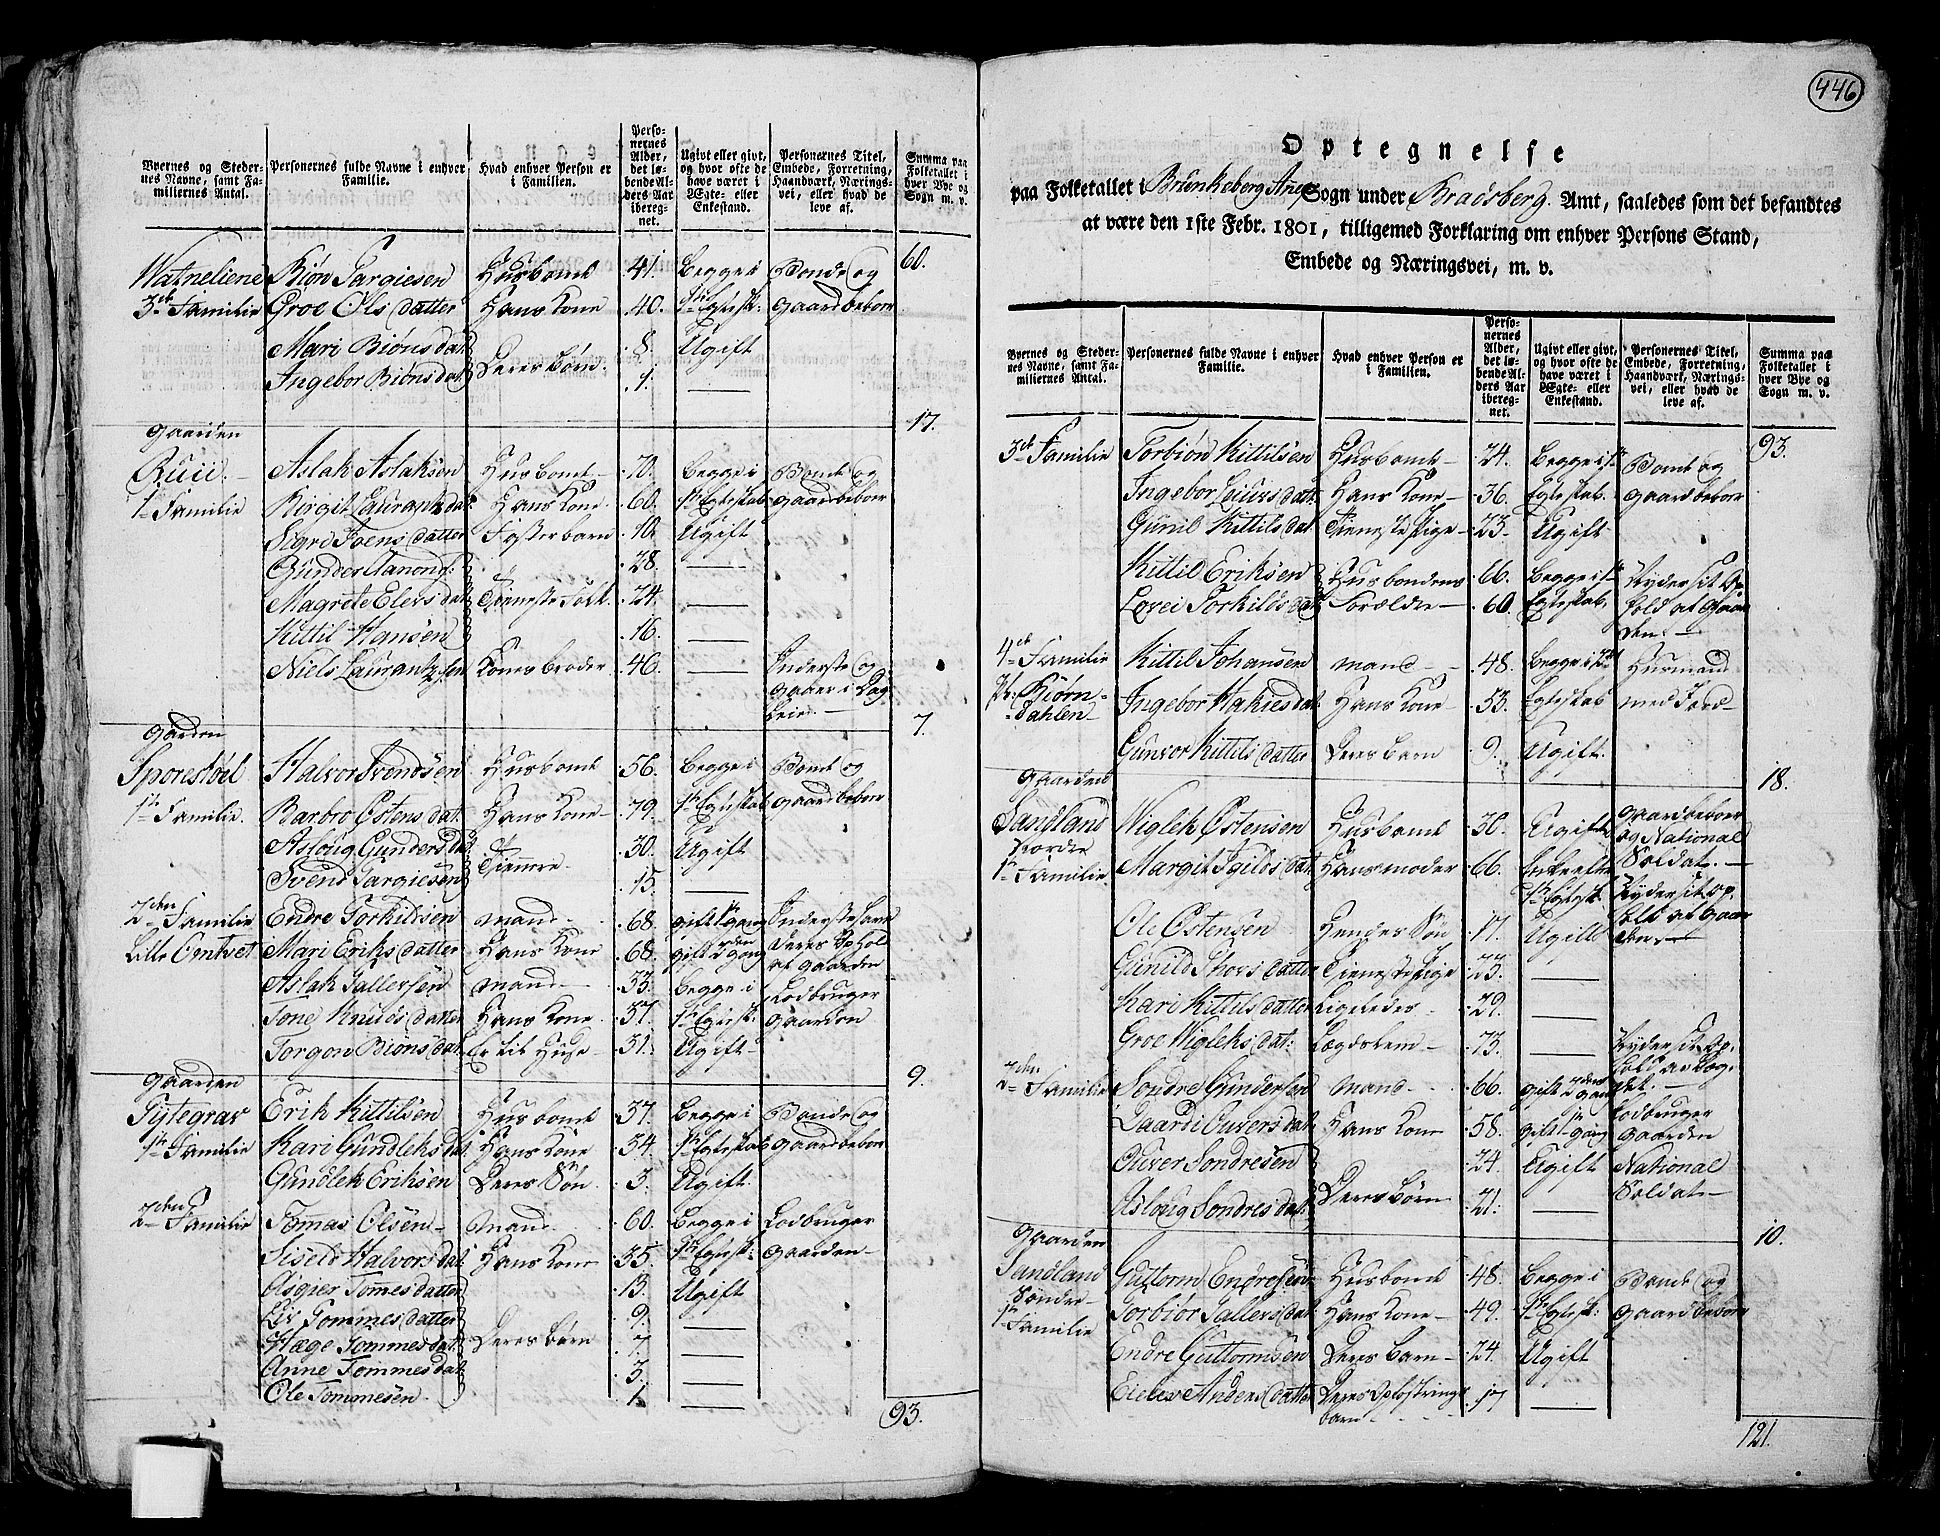 446
Byernes og Steder-
nes Navne, samt Fa-
miliernes Antal.
Personernes fulde Navne i enhver
Familie.
Hvad enhver Person er
i Familien.
Perso-
nernes
Alder,
det lø-
bende Al-
ders Aar
iberegnet.
Ugivt eller givt,
og hvor ofte de
have været i
Ægte- eller
Enkestand.
Personernes Titel,
Embede, Forretning,
Haandværk, Nærings-
vei, eller hvad de
leve af.
Summa paa
Folketallet i
hver Bye og
Sogn m. v.
60.
Watneliene Biøn Targiesen Husbonde 41. Begge i Bonde og
3de Familie Groe Ols datter Hans Kone 40. 1te Egtesk: gaardbeboer
Mari Biøns dat: 8. Ugift
Deres børn
Ingebor Biøns dat: 1. —
17.
Gaarden
Ruii Aslak Aslaksen Husbonde 70. Begge i Bonde og
1te Familie Birgit Laurantz dat: Hans Kone 60. 1te Egteskab gaardbeboer
Sigri Joens datter Fosterbarn 10. Ugift
Gunder Aanonds: 28. —
Magrete Elevs dat: Tieneste Folk 24. —
Kittil Hansen 16. —
Niels Laurantzsen Konens broder 46. — Inderste og
gaaer i Dag
Leie.
7.
Gaarden
Sporestøel Halvor Svendsen Husbonde 56. Begge i Bonde og
1te Familie. Barbro Østens dat: Hans Kone 79. 1te Egteskab gaardbeboer
Asloug Gunders dat: 30. Ugift
Tiennere
Svend Targiesen 15. —
2den Familie Endre Torkildsen Mand 68. gift 1te gang Inderste
Lille Omtvet Mari Eriks datter Hans Kone 68. gift 2den gang deres Ophol
af gaarden
Aslak Tallefsen Mand 33. Begge i Lodbruger
Tone Knuds datter Hans Kone 37. 1te Egtesk: gaarden
Torgon Biøns dat: Er til Huse 31. Ugift
9.
Gaarden
Tytegrav Erik Kittilsen Husbonde 37. Begge i Bonde og
1te Familie Kari Gundleks dat: Hans Kone 34. 1te Egteskab gaardbeboer
Gundlek Eriksen Deres Søn 3. Ugift
2den Familie Tomas Olsen Mand 60. Begge i Lodbruger
Siseld Halvors dat: Hans Kone 35. 1te Egtesk: gaarden
Asgier Tommes datter 13. Ugift
Liv Tommes datter 9. —
Hæge Tommes dat: Deres børn 7. —
Anne Tommes dat: 3. —
Ole Tommesen 1. —
93.
Optegnelse
paa Folketallet i Brunkeberg Anex Sogn under Bradsberg Amt, saaledes som det befandtes
at være den 1ste Febr. 1801, tilligemed Forklaring om enhver Persons Stand,
Embede og Næringsvei, m. v.
Byernes og Steder-
nes Navne, samt Fa-
miliernes Antal.
Personernes fulde Navne i enhver
Familie.
Hvad enhver Person er
i Familien.
Perso-
nernes
Alder,
det lø-
bende Al-
ders Aar
iberegnet.
Ugivt eller givt,
og hvor ofte de
have været i
Ægte- eller
Enkestand.
Personernes Titel,
Embede, Forretning,
Haandværk, Nærings-
vei, eller hvad de
leve af.
Summa paa
Folketallet i
hver Bye og
Sogn m. v.
93.
3de Familie Torbiøn Kittilsen Husbonde 24. Begge i 1te Bonde og
Ingebor Leiurs dat: Hans Kone 36. Egteskab. gaardbeboer
Gunil Kittils dat: Tieneste Pige 23. Ugift
Kittil Eriksen Husbondens 66. Begge i 1te Nyder sit Op-
Lovei Torkilds dat: Forældre 60. Egteskab. hold af Gaar
den.
4de Familie Kittil Johansen Mand 48. Begge i Husmand
Biørn- Ingebor Hakies dat: Hans Kone 53. Egteskab med Jord
dahlen
Gunvor Kittils datter Deres barn 9. Ugift
18.
Gaarden
Sandland Wiglek Østensen Husbonde 30. Ugift Gaardbeboer
Nordre og National
Soldat.
1te Familie Margit Sgilds dat: Hans moder 66. Enke efter Nyder sit Op-
1te Egtesk: hold af Gaar
Ole Østensen Hendes Søn 17. Ugift den.
Gunild Thors datter Tieneste Pige 23. —
Kari Kittils datter Ligeledes 29. —
Groe Wigleks dat: Lægdslem 73. — Nyder sit Op-
hold av Læg
det.
2den Familie Sondre Gundersen Mand 66. gift 2den gang Lodbruger
Daardi Ouvers dat: Hans Kone 58. gift 1te gang gaarden
Ouver Sondresen 24. Ugift National
Soldat
Deres børn
Asloug Sondres dat: 21. —
10.
Gaarden
Sandland Guttorm Endresen Husbonde 48. Begge i Bonde og
Søndre Torbiør Tallevs dat: Hans Kone 49. 1te Egtesk: gaardbeboer
1te Familie
Endre Guttormsen Deres Barn 24. Ugift
Anders datter Deres Opfostrings 17 —
barn
121.